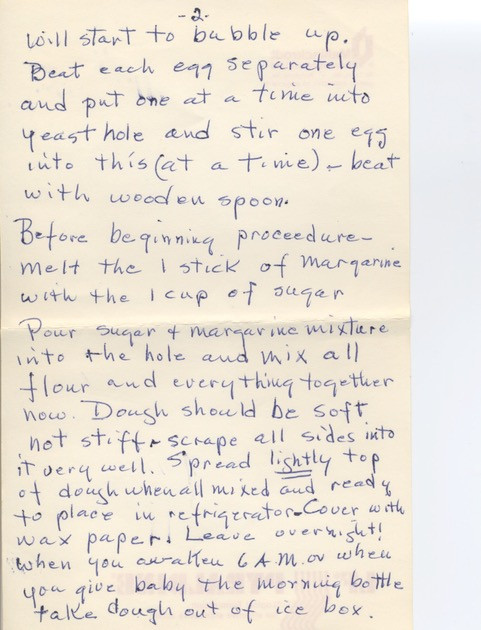 -2-
will start to bubble up.
Beat each egg separately
and put one at a time into
yeast hole and stir one egg
into this (at a time) - beat
with wooden spoon.
Before beginning proceedure-
melt the 1 stick of margarine
with the 1 cup of sugar
Pour sugar + margarine mixture
into the hole and mix all
flour and everything together
now. Dough should be soft
not stiff - scrape all sides into
it very well. Spread lightly top
of dough when all mixed and ready
to place in refrigerator - Cover with
wax paper. Leave overnight!
when you awaken 6 A.M. or when
you give baby the morning bottle
take dough out of ice box.